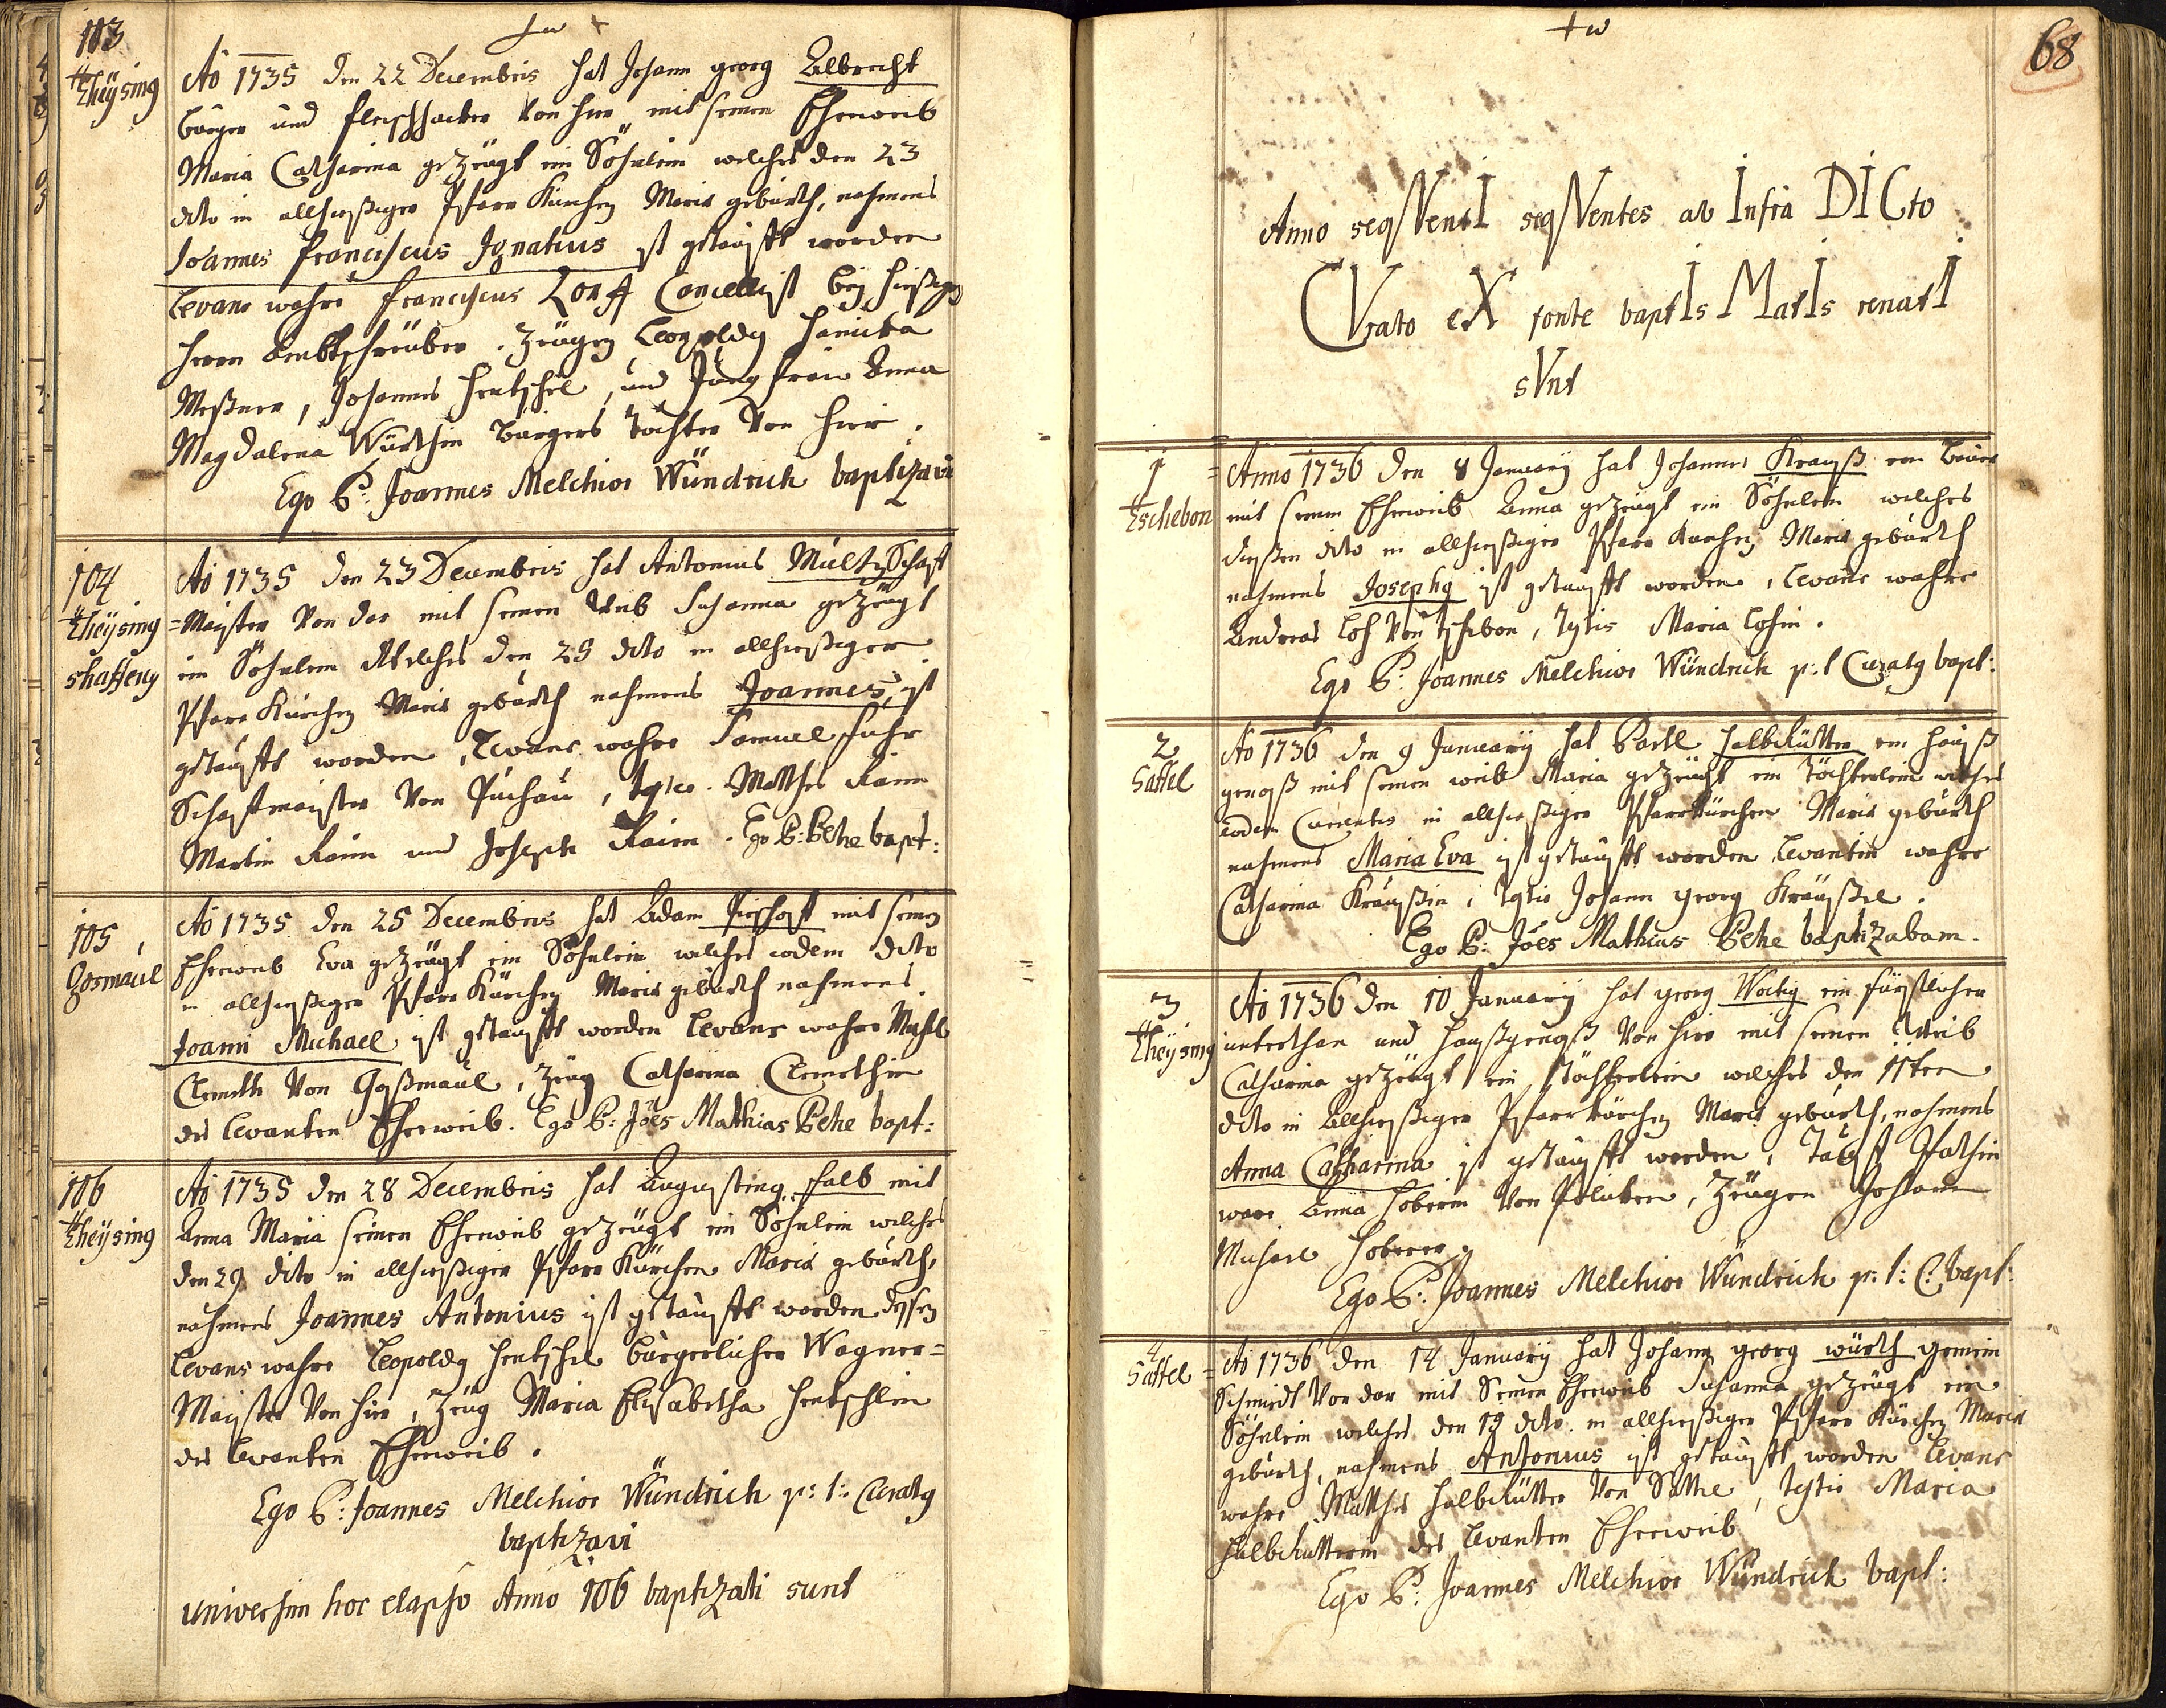 103
Theÿsing
Aō 1735 den 22 Decembris hat Johann georg Albrecht
burger und fleischhacker von hier mit seinem Eheweib
Maria Catharina gezeügt ein Söhnlein welches den 23
dito in allhiesiger Pfarr Kirchen Mariä gebürth, nahmens
Joannes franciscus Ignatius ist getaufft worden
Levans wahre franciscus Cancellist beÿ hiesigen
herrn Ambtschreiber. Zeügen Leopoldg
Meßner, Johannes Hentschel, und Jungfrau Anna
Magdalena Würthin burgers tochter von hier.
Ego P: Joannes Melchior Wündrich baptizavi
104
Theÿsing
shaffery
Aō 1735 den 23 Decembris hat Antonius Mültz Schaff
=Maister von dar mit seinem Weib Susanna gezeügt
ein Söhnlein Welches den 25 dito in allhiesiger
Pfarr Kirchen Mariä gebürth nahmens Joannes, ist
getaufft worden, Levans wahre Samuel fuhr
Schaffmaister von Puchau, Matthes Raim
Martin Raim und Joseph Raim. Ego P: Pehe bapt:
105
Gosmaul
Aō 1735 den 25 Decembris hat Adam mit seinen
Eheweib Eva gezeügt ein Söhnlein welches eodem dito
in allhiesiger Pfarr Kirchen Mariä gebürth nahmens
Joann Michael ist getaufft worden Levans wahre Michl
Clemeth von Goßmaul, Zeug Catharina Clemethin
des Levanten Eheweib. Ego P: Jões Mathias Pehe bapt:
106
Theÿsing
Aō 1735 den 28 Decembris hat Augusting falb mit
Anna Maria seinen Eheweib gezeügt ein Söhnlein welches
den 29 dito in allhiesiger Pfarr Kirchen Mariä gebürth,
nahmens Joannes Antonius ist getaufft worden dessen
Levans wahre Leopoldg Hentschel burgerlicher Wagner=
Maister von hier, Zeüg Maria Elisabetha Hentschlin
des Levanten Eheweib.
Ego P: Joannes Melchior Wündrich p: t: Curatg
baptizavi
universim hoc elapso Anno 106 baptizati sunt
68
Anno seqVentI seqVentes ab Infra DICto
CVrato eX fonte baptIsMatIs renatI
sVnt
1
Tschebon
Anno 1736 den 8 Januarÿ hat Johannes Krauß ein Bauer
mit seinem Eheweib Anna gezeügt ein Söhnlein welches
diesen dito in allhiesiger Pfarr Kirchen Mariä gebürth
nahmens Josephg ist getaufft worden, Levans wahre
Andreas Loh von Tschebon, Testis Maria Lohin.
Ego P: Joannes Melchior Wündrich p: t Curatg bapt:
2
Sattel
Aō 1736 den 9 Januarÿ hat Partl Halbritter ein hauß
genoß mit seinen weib Maria gezeücht ein Töchterlein welches
eodem Currentis in allhiesiger Pfarrkirchen Mariä gebürth
nahmens Maria Eva ist getaufft worden, Levantin wahre
Catharina Kräußin, Testis Johann georg Kräußel.
Ego P: Jões Mathias Pehe baptizabam.
3
Theÿsing
Aō 1736 den 10 Januarÿ hat georg Wockg ein fürstlicher
unterthan und haußgenoß von hier mit seinen Weib
Catharina gezeügt ein töchterlein welches den 11ten
dito in allhiesiger Pfarrkirchen Mariä gebürth, nahmens
Anna Catharina ist getaufft worden, Tauff Pathin
ware Anna Hoberin von, Zeügen Johann
Michael Hoberer.
Ego P: Joannes Melchior Wündrich p: t: C: bapt:
4
Sattel
Aō 1736 den 14 Januarÿ hat Johann georg würth gemein
Schmidt von dar mit Seinen Eheweib Susanna gezeügt ein
Söhnlein welches den 19 dito in allhiesiger Pfarr Kirchen Mariä
gebürth, nahmens Antonius ist getaufft worden Levans
wahre Matthes Halbritter von Sattel, Testis Maria
Halbritterin des Levanten Eheweib
Ego P: Joannes Melchior Wündrich bapt: